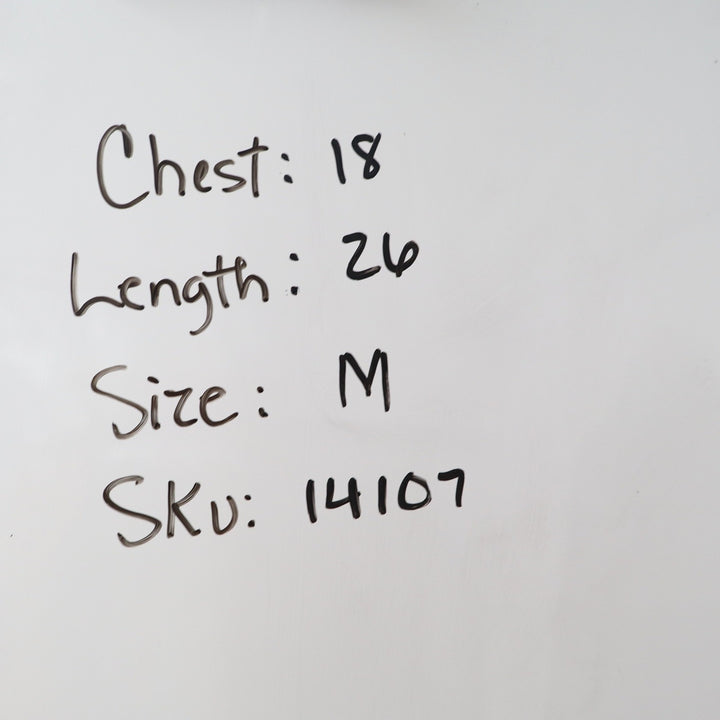 Chest: 18
Length: 26
Size: M
SKU: 14107